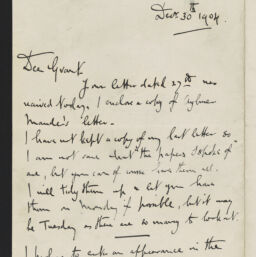 Decr. 30th 1904.
Dear Grant
Your letter dated 27th was
received today. I enclose a copy of Aylmer
Maude's letter.
I have not kept a copy of my last letter so
I am not sure what "the papers spoken of"
are, but you can of course see them all.
I will tidy them up a bit & you have
them on Monday if possible, but it may
be Tuesday as there are so many to look at.
I had to an appearance in the